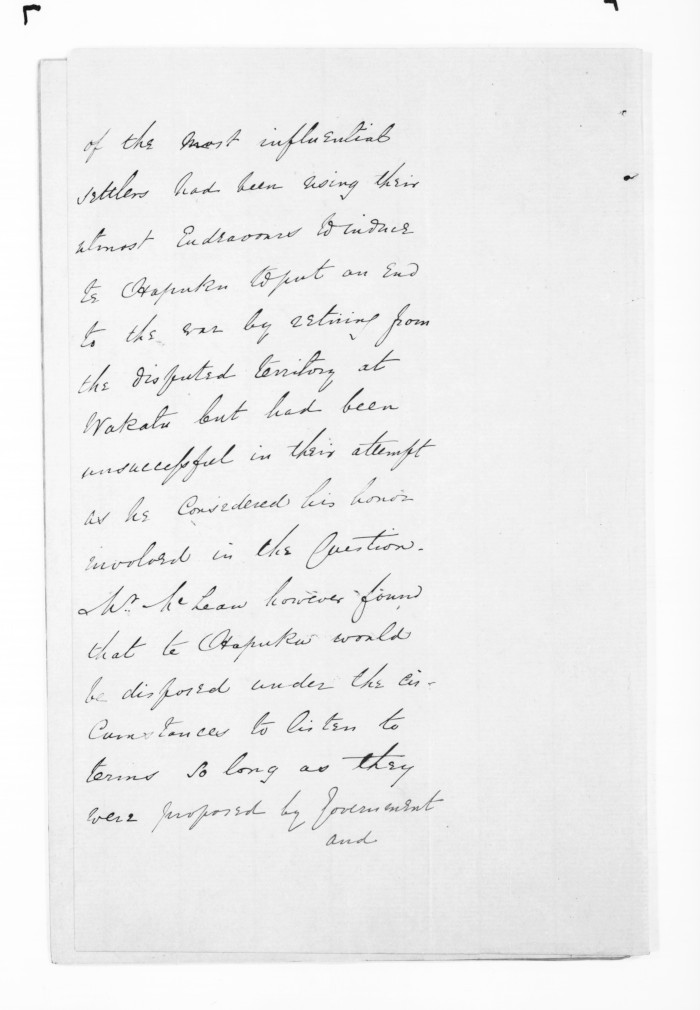 of the most influential
settlers had been using their
utmost Endeavours to induce
te Hapuku to put an End
to the war by retiring from
the disputed territory at
Wakatu but had been
unsuccessful in their attempt
as he Considered his honor
involved in the Question.
Mr. McLean however found
that te Hapuku would
be disposed under the cir-
cumstances to listen to
terms so long as they
were proposed by Government
and